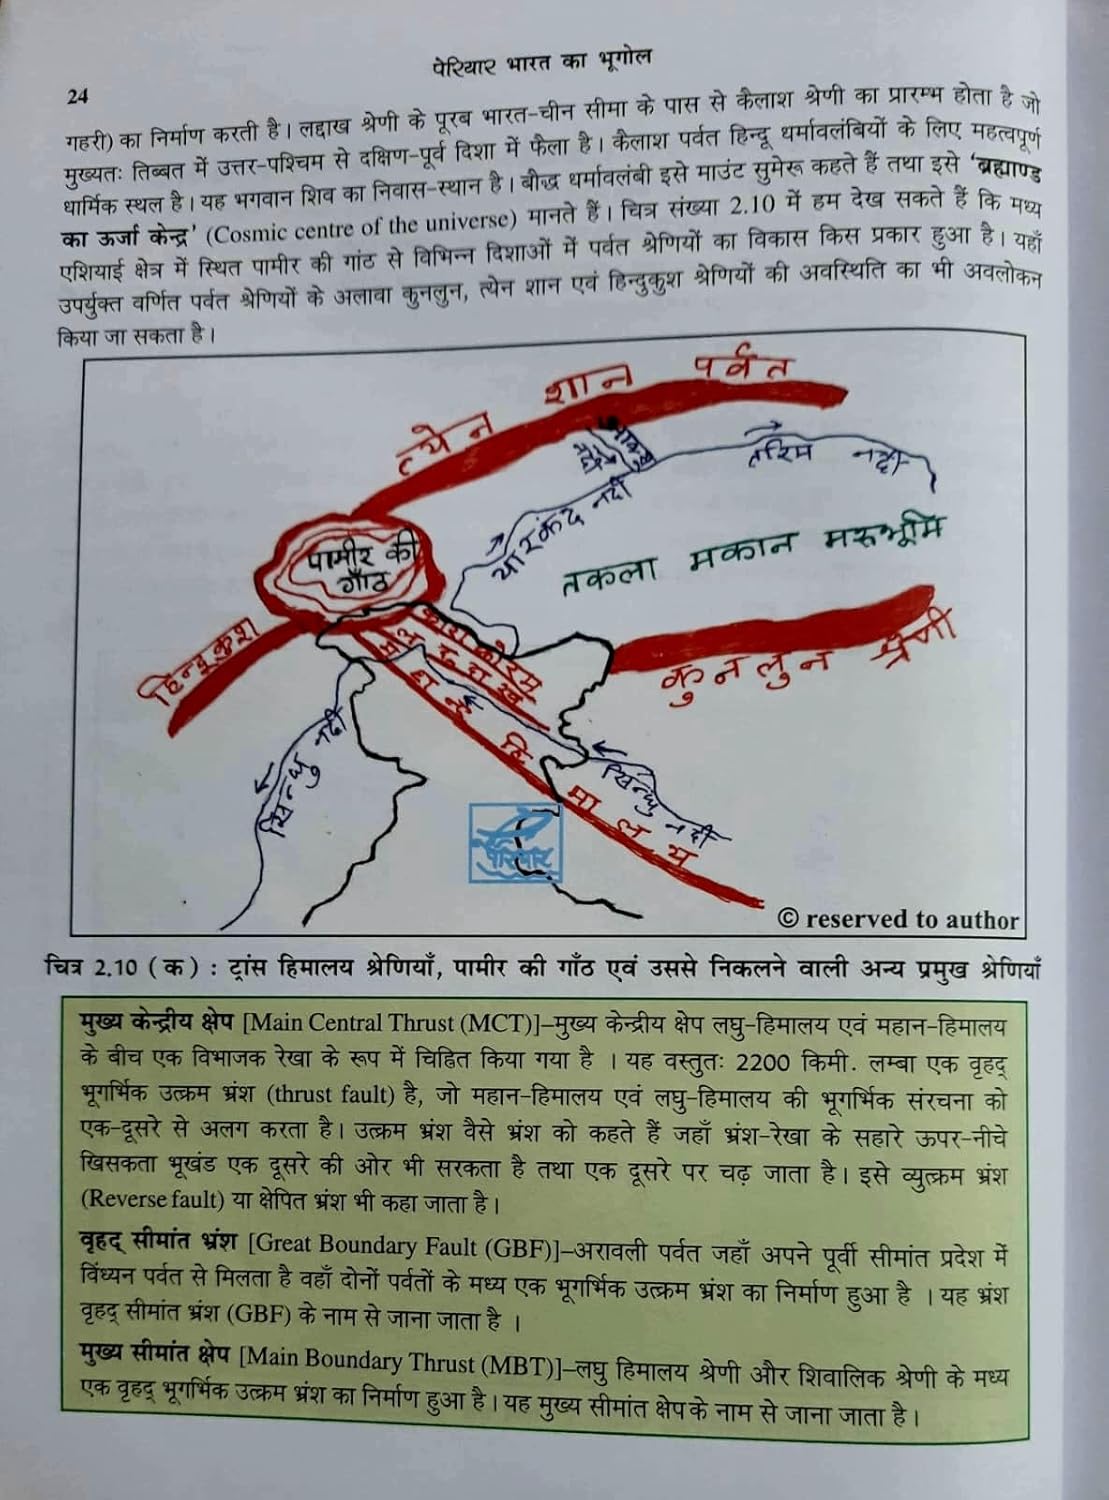 पेरियार भारत का भूगोल
24
गहरी) का निर्माण करती है। लद्दाख श्रेणी के पूरब भारत-चीन सीमा के पास से कैलाश श्रेणी का प्रारम्भ होता है जो
मुख्यतः तिब्बत में उत्तर-पश्चिम से दक्षिण-पूर्व दिशा में फैला है। कैलाश पर्वत हिन्दू धर्मावलंबियों के लिए महत्वपूर्ण
धार्मिक स्थल है। यह भगवान शिव का निवास-स्थान है। बौद्ध धर्मावलंबी इसे माउंट सुमेरू कहते हैं तथा इसे 'ब्रह्माण्ड
का ऊर्जा केन्द्र' (Cosmic centre of the universe) मानते हैं। चित्र संख्या 2.10 में हम देख सकते हैं कि मध्य
एशियाई क्षेत्र में स्थित पामीर की गांठ से विभिन्न दिशाओं में पर्वत श्रेणियों का विकास किस प्रकार हुआ है। यहाँ
उपर्युक्त वर्णित पर्वत श्रेणियों के अलावा कुनलुन, त्येन शान एवं हिन्दुकुश श्रेणियों की अवस्थिति का भी अवलोकन
किया जा सकता है।
त्येन शान पर्वत
तरिम नदी
यारकंद नदी
पामीर की
गाँठ
तकला मकान मरूभूमि
हिन्दूकुश
काराकोरम
लद्दाख
कुनलुन श्रेणी
महान हिमालय
सिन्धु नदी
सिन्धु नदी
पेरियार
© reserved to author
चित्र 2.10 (क) : ट्रांस हिमालय श्रेणियाँ, पामीर की गाँठ एवं उससे निकलने वाली अन्य प्रमुख श्रेणियाँ
मुख्य केन्द्रीय क्षेप [Main Central Thrust (MCT)]–मुख्य केन्द्रीय क्षेप लघु-हिमालय एवं महान-हिमालय
के बीच एक विभाजक रेखा के रूप में चिह्नित किया गया है । यह वस्तुतः 2200 किमी. लम्बा एक वृहद्
भूगर्भिक उत्क्रम भ्रंश (thrust fault) है, जो महान-हिमालय एवं लघु-हिमालय की भूगर्भिक संरचना को
एक-दूसरे से अलग करता है। उत्क्रम भ्रंश वैसे भ्रंश को कहते हैं जहाँ भ्रंश-रेखा के सहारे ऊपर-नीचे
खिसकता भूखंड एक दूसरे की ओर भी सरकता है तथा एक दूसरे पर चढ़ जाता है। इसे व्युत्क्रम भ्रंश
(Reverse fault) या क्षेपित भ्रंश भी कहा जाता है।
वृहद् सीमांत भ्रंश [Great Boundary Fault (GBF)]–अरावली पर्वत जहाँ अपने पूर्वी सीमांत प्रदेश में
विंध्यन पर्वत से मिलता है वहाँ दोनों पर्वतों के मध्य एक भूगर्भिक उत्क्रम भ्रंश का निर्माण हुआ है । यह भ्रंश
वृहद् सीमांत भ्रंश (GBF) के नाम से जाना जाता है ।
मुख्य सीमांत क्षेप [Main Boundary Thrust (MBT)]–लघु हिमालय श्रेणी और शिवालिक श्रेणी के मध्य
एक वृहद् भूगर्भिक उत्क्रम भ्रंश का निर्माण हुआ है। यह मुख्य सीमांत क्षेप के नाम से जाना जाता है।